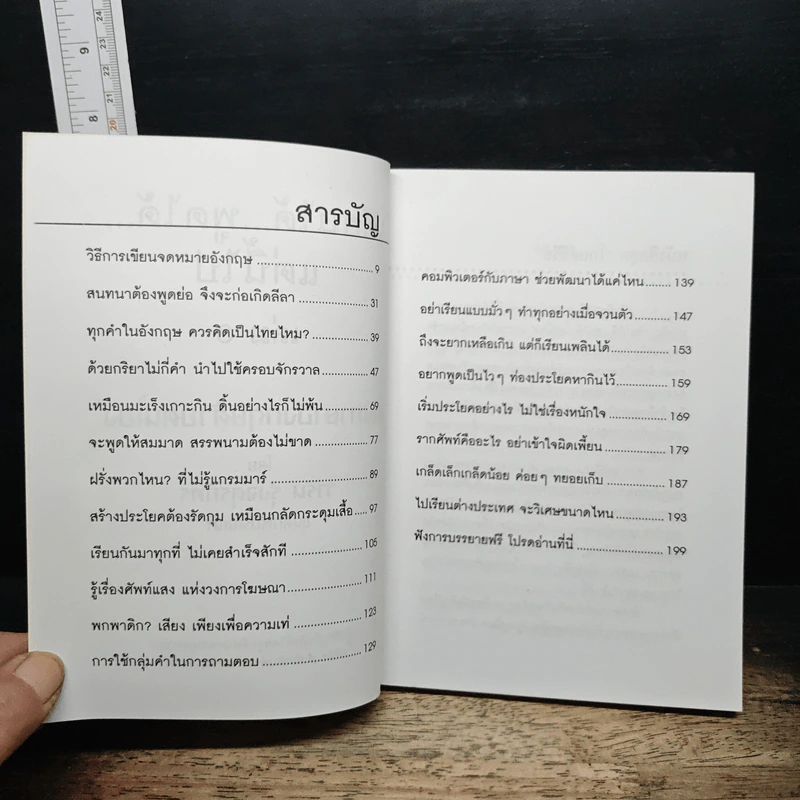 24
23
22
21
20
9
8
สารบัญ
วิธีการเขียนจดหมายอังกฤษ ........................ 9
สนทนาต้องพูดย่อ จึงจะก่อเกิดลีลา .................. 31
ทุกคำในอังกฤษ ควรคิดเป็นไทยไหม? ............... 39
ด้วยกริยาไม่กี่คำ นำไปใช้ครอบจักรวาล ............ 47
เหมือนมะเร็งเกาะกิน ดิ้นอย่างไรก็ไม่พ้น ............ 69
จะพูดให้สมมาด สรรพนามต้องไม่ขาด .............. 77
ฝรั่งพวกไหน? ที่ไม่รู้แกรมมาร์ ...................... 89
สร้างประโยคต้องรัดกุม เหมือนกลัดกระดุมเสื้อ ..... 97
เรียนกันมาทุกที่ ไม่เคยสำเร็จสักที ................... 105
รู้เรื่องศัพท์แสง แห่งวงการโฆษณา .................. 111
พกพาดิก? เสียง เพียงเพื่อความเท่ .................. 123
การใช้กลุ่มคำในการถามตอบ ........................ 129
คอมพิวเตอร์กับภาษา ช่วยพัฒนาได้แค่ไหน ....... 139
อย่าเรียนแบบมั่วๆ ทำทุกอย่างเมื่อจวนตัว .......... 147
ถึงจะยากเหลือเกิน แต่ก็เรียนเพลินได้ ............... 153
อยากพูดเป็นไวๆ ท่องประโยคหากินไว้ .............. 159
เริ่มประโยคอย่างไร ไม่ใช่เรื่องหนักใจ ............... 169
รากศัพท์คืออะไร อย่าเข้าใจผิดเพี้ยน ................ 179
เกล็ดเล็กเกล็ดน้อย ค่อยๆ ทยอยเก็บ ................ 187
ไปเรียนต่างประเทศ จะวิเศษขนาดไหน ............. 193
ฟังการบรรยายฟรี โปรดอ่านที่นี่ ..................... 199